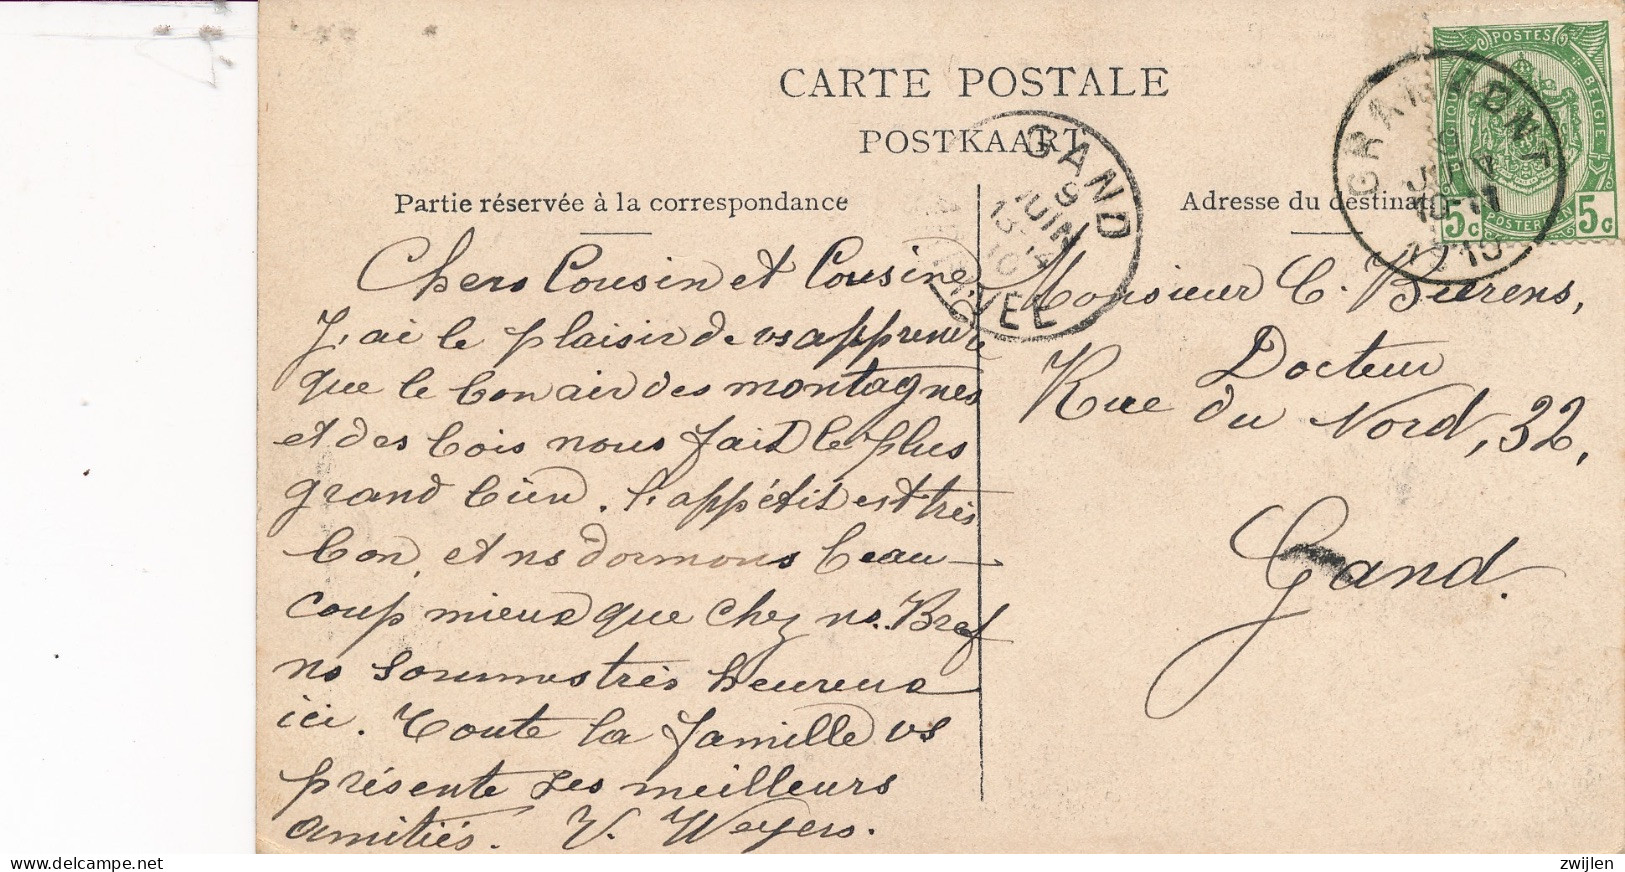 CARTE POSTALE
POSTKAART
Partie réservée à la correspondance
Chers Cousin et Cousine,
J'ai le plaisir de vs apprendre
que le bon air des montagnes
et des bois nous fait le plus
grand bien. L'appétit est très
bon, et ns dormons beau-
coup mieux que chez ns. Bref
ns sommes très heureux
ici. Toute la famille vs
présente ses meilleurs
amitiés. V. Weyers.
GAND
9
JUIN
13-14
10
ARRIVÉE
POSTES
BELGIQUE
BELGIE
POSTERIJEN
5c 5c
GRAMMONT
JUIN
10-11
1910
Adresse du destinat
Monsieur C. Bierens,
Docteur
Rue du Nord, 32,
Gand.
zwijlen
www.delcampe.net